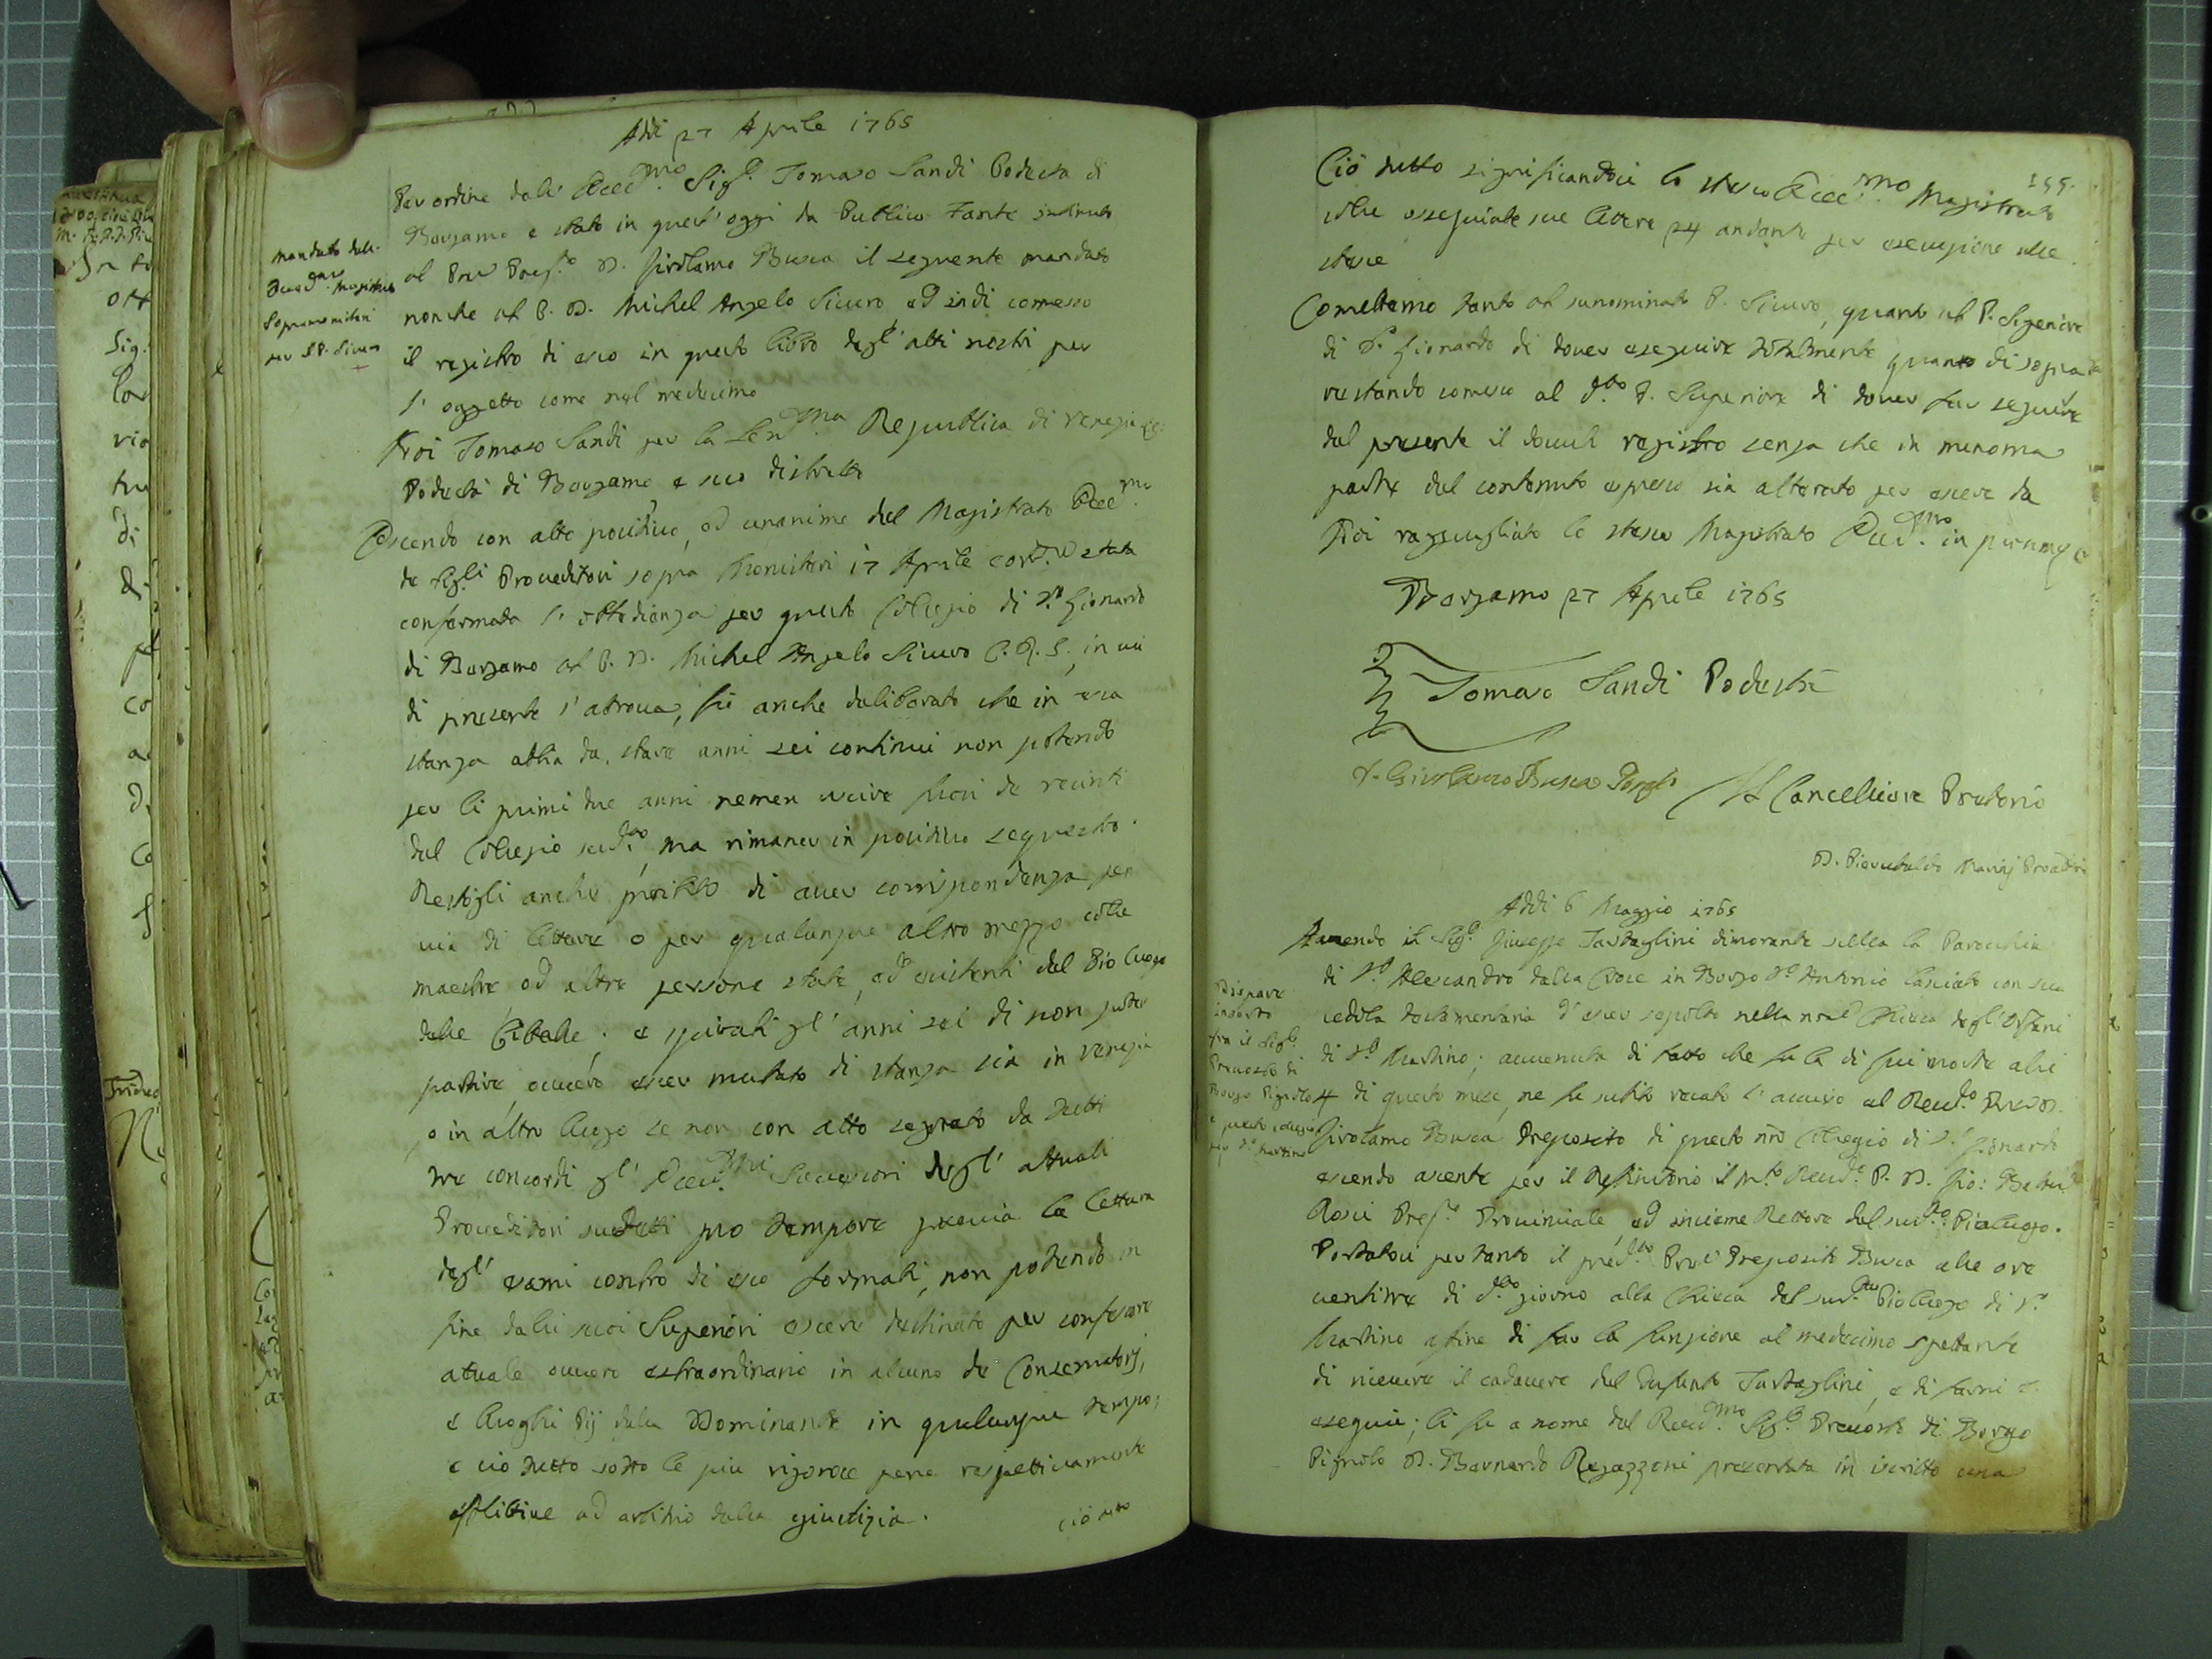 Addi 27 Aprile 1765
Per ordine dall' Ecc.mo Sig.r Tomaso Sandi Podestà di
Bergamo è stato in quest'oggi da Publico Fante intimato
al Pre Prep.to D. Girolamo Busca il seguente mandato
nonche al P. D. Michel Angelo Sicuro ed indi comesso
il registro di esso in questo libro degl' atti nostri per
l' oggetto come nel medesimo
Mandato dell'
Ecc.mo Magistrato
Sopramonisteri
per il P. Sicuro
Noi Tomaso Sandi per la Ser.ma Republica di Venezia
Podestà di Bergamo e suo distretto
Essendo con atto positivo, ed unanime del Magistrato Ecc.mo
de Sig.li Proveditori sopra Monisteri 17 Aprile corr.te stata
confermata l' obbedienza per questo Collegio di S. Lionardo
di Bergamo al P. D. Michel Angelo Sicuro C. R. S., in cui
di presente s' atrova, fù anche deliberato che in essa
stanza abbia da stare anni sei continui non potendo
per li primi due anni nemen uscire fuori de recinti
del Collegio sud.to, ma rimaner in positivo sequestro.
Restigli anche proibito di aver corrispondenza per
via di lettere o per qualunque altro mezzo colle
maestre od altre persone state, ed esistenti del Pio Luogo
delle Cittelle; e spirati gl' anni sei di non poter
partire, ovvero esser mutato di stanza sia in Venezia
o in altro luogo se non con atto segnato da tutti
tre concordi gl' Ecc.mi Successori degl' attuali
Proveditori sudetti pro tempore previa la lettura
degl' esami contro di esso formati, non potendo in
fine dalli suoi Superiori essere destinato per confessore
attuale ovvero estraordinario in alcuno de Conservatorj,
e Luoghi Pij della Dominante in qualunque tempo;
e ciò tutto sotto le più rigorose pene respettivamente
afflittive ad arbitrio della giustizia.
Ciò tutto
155.
Ciò tutto significandoci lo stesso Ecc.mo Magistrato
colle ossequiate sue lettere 24 andante per esecuzione delle
stesse
Comettemo tanto al sunominato P. Sicuro, quanto al P. Superiore
di S. Lionardo di dover eseguire totalmente quanto di sopra
restando comesso al d.to P. Superiore di dover far seguire
del presente il dovuto registro senza che in menoma
parte del contenuto espresso sia alterato per essere da
Noi raguagliato lo stesso Magistrato Ecc.mo
Bergamo 27 Aprile 1765
Tomaso Sandi Podestà
D. Girolamo Busca Prep.to
Il Cancelliere Pretorio
D. Pier
Addi 6 Maggio 1765
Avendo il Sig.r Giuseppe Tartaglini dimorante sotto la Parochia
di S. Alessandro della Croce in Borgo S. Antonio lasciato con sua
cedola testamentaria d' esser sepolto nella nra Chiesa degl' Orfani
di S. Martino; avvenuta di fatto che fu la di lui morte alli
4 di questo mese, ne fu subito recato l' avviso al Rev.do Pre D.
Girolamo Busca Preposito di questo nro Collegio di S. Lionardo
essendo assente per il Definitorio il M.to Rev.do P. D. Gio: Batta
Rossi Prep.to Provinciale, ed insieme Rettore del sud.to Pio Luogo.
Dispare
insorto
fra il Sig.r
Prevosto di
Borgo Pignolo
e questo collegio
per S. Martino
Portatosi per tanto il pred.to Pre Preposito Busca alle ore
ventitre di d.to giorno alla Chiesa del sud.to Pio Luogo di S.
Martino a fine di far la funzione al medesimo spettante
di ricevere il cadavere del Defunto Tartaglini, e di farni l'
esequie; li fu a nome del Rev.mo Sig.r Prevosto di Borgo
Pignolo D. Bernardo Regazzoni presentata in iscritto una